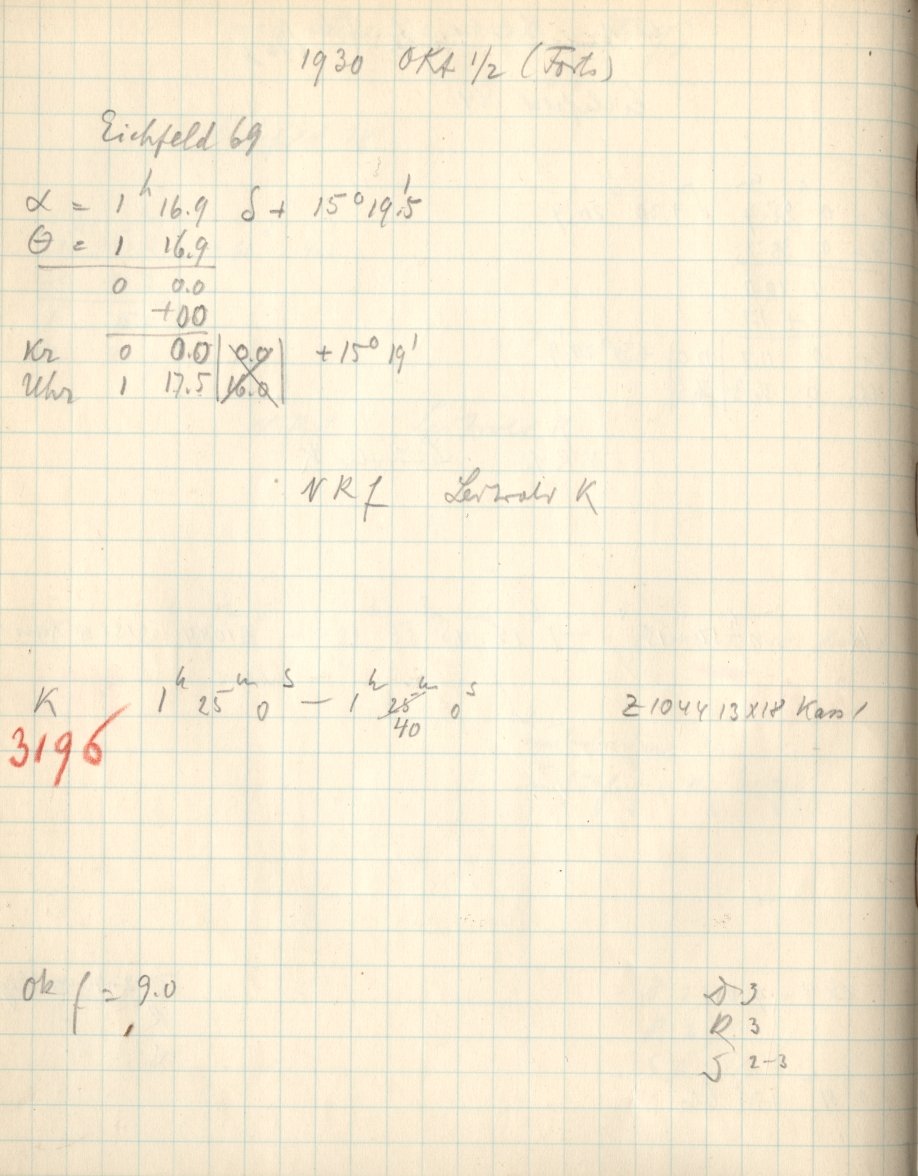 1930 OKt 1/2 (Forts)
Eichfeld 69
α = 1ʰ 16.9 δ + 15° 19.'5
θ = 1 16.9
0 0.0
+00
Kr 0 0.0 0.0 +15° 19'
Uhr 1 17.5 16.0
NRf K
K 1ʰ 25ᵐ 0ˢ — 1ʰ 25ᵐ 0ˢ Z 1044 13X18 Kass 1
40
3196
Ok f = 9.0
3
R 3
S 2-3